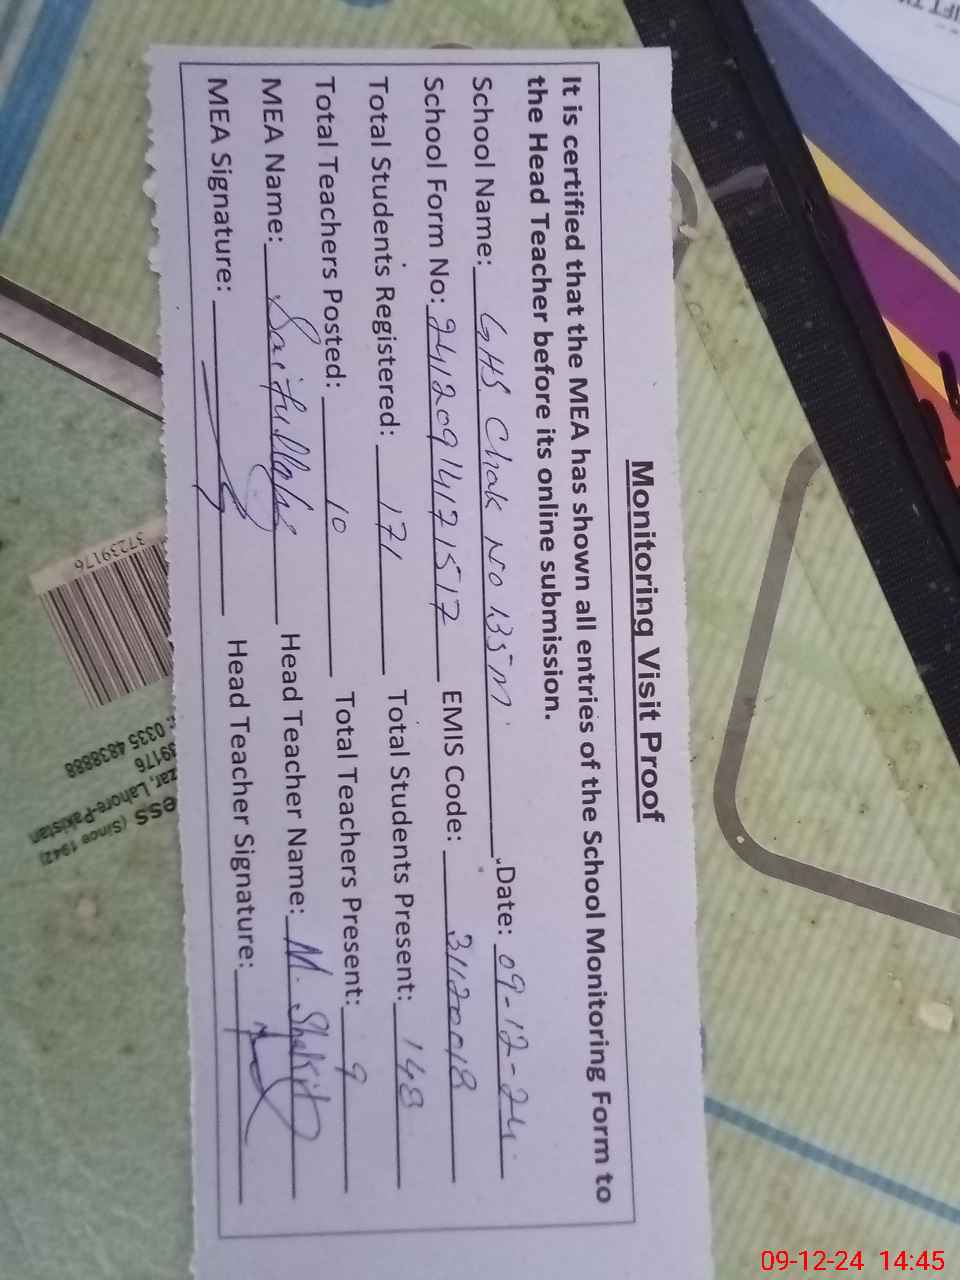 Monitoring Visit Proof
It is certified that the MEA has shown all entries of the School Monitoring Form to
the Head Teacher before its online submission.
School Name: GHS Chak No 135M Date: 09-12-24
School Form No: 24120914171517 EMIS Code: 31120018
Total Students Registered: 171 Total Students Present: 148
Total Teachers Posted: 10 Total Teachers Present: 9
MEA Name: Saifullah Head Teacher Name: M. Shakir
MEA Signature: Head Teacher Signature:
37239176
ess (Since 1942)
zar, Lahore-Pakistan
39176
: 0335 4838888
09-12-24 14:45